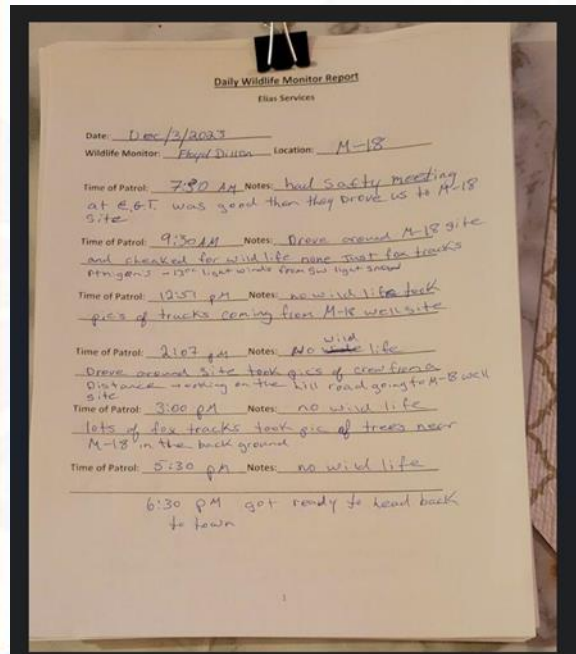 Daily Wildlife Monitor Report
Elias Services
Date: Dec/3/2023
Wildlife Monitor: Floyd Dillon Location: M-18
Time of Patrol: 7:30 AM Notes: had safty meeting
at E.G.T. was good then they Drove us to M-18
site
Time of Patrol: 9:30 AM Notes: Drove around M-18 site
and cheaked for wild life none Just fox tracks
light winds from SW light snow
Time of Patrol: 12:57 pM Notes: no wild life took
pics of trucks coming from M-18 well site
Time of Patrol: 2:07 pM Notes: No wild life
Drove around site took pics of crew from a
Distance working on the hill road going to M-18 well
site
Time of Patrol: 3:00 pM Notes: no wild life
lots of fox tracks took pic of trees near
M-18 in the back ground
Time of Patrol: 5:30 pM Notes: no wild life
6:30 pM got ready to head back
to town
1